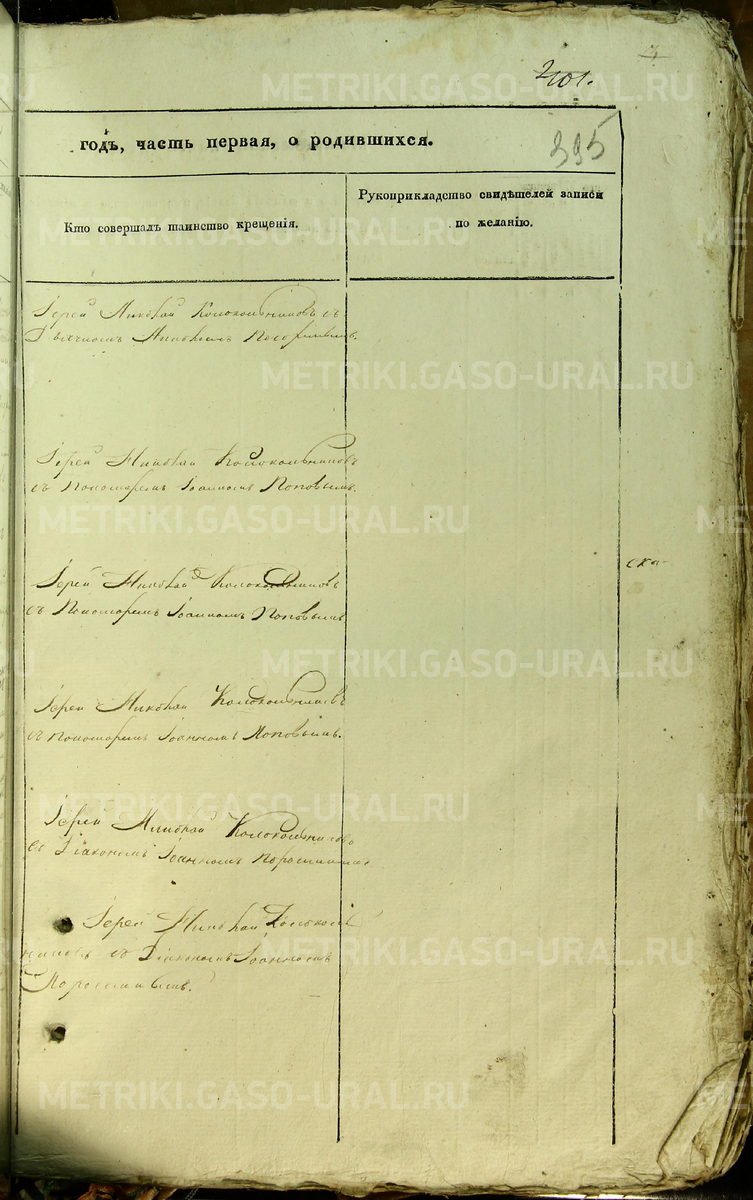 401.
395
годъ, часть первая, о родившихся.
Кто совершалъ таинство крещенія.
Рукоприкладство свидѣтелей записи
по желанію.
Іерей Николай Колокольниковъ съ
Дьячкомъ
Іерей Николай Колокольниковъ
съ Пономаремъ Іоанномъ Поповымъ.
Іерей Николай Колокольниковъ
съ Пономаремъ Іоанномъ Поповымъ
Іерей Николай Колокольниковъ
съ пономаремъ Іоанномъ Поповымъ.
Іерей Николай Колокольниковъ
съ Діакономъ Іоанномъ
Іерей Николай Колоколь
никовъ съ Діакономъ Іоанномъ
METRIKI.GASO-URAL.RU